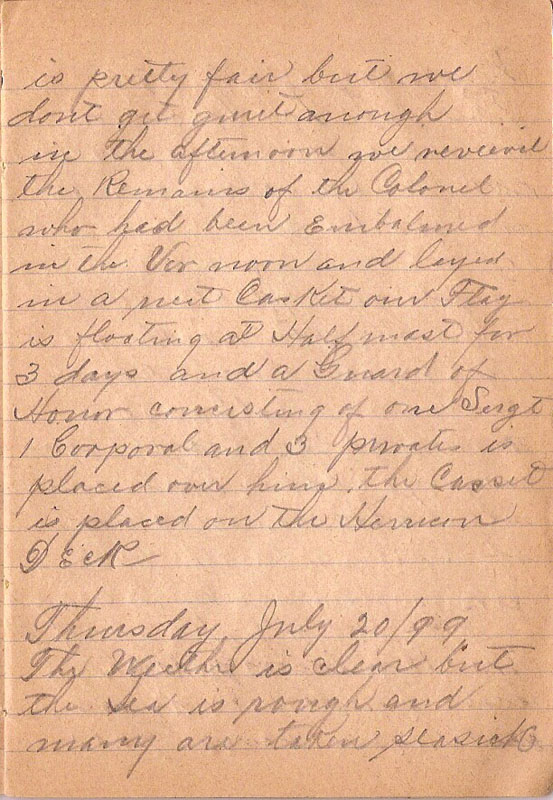 is pretty fair but we
dont get quiet anough
in the afternoon we revievil
the Remains of the Colonel
who had been Embalmed
in the Vor noon and layed
in a neet Casket our Flag
is floating at Half mast for
3 days and a Guard of
Honor consisting of one Sergt
1 Corporal and 3 privates is
placed over him. the Casset
is placed on the Herricon
Deck
Thursday, July 20/99
The Weethe is clear but
the sea is rough and
many are taken seasick